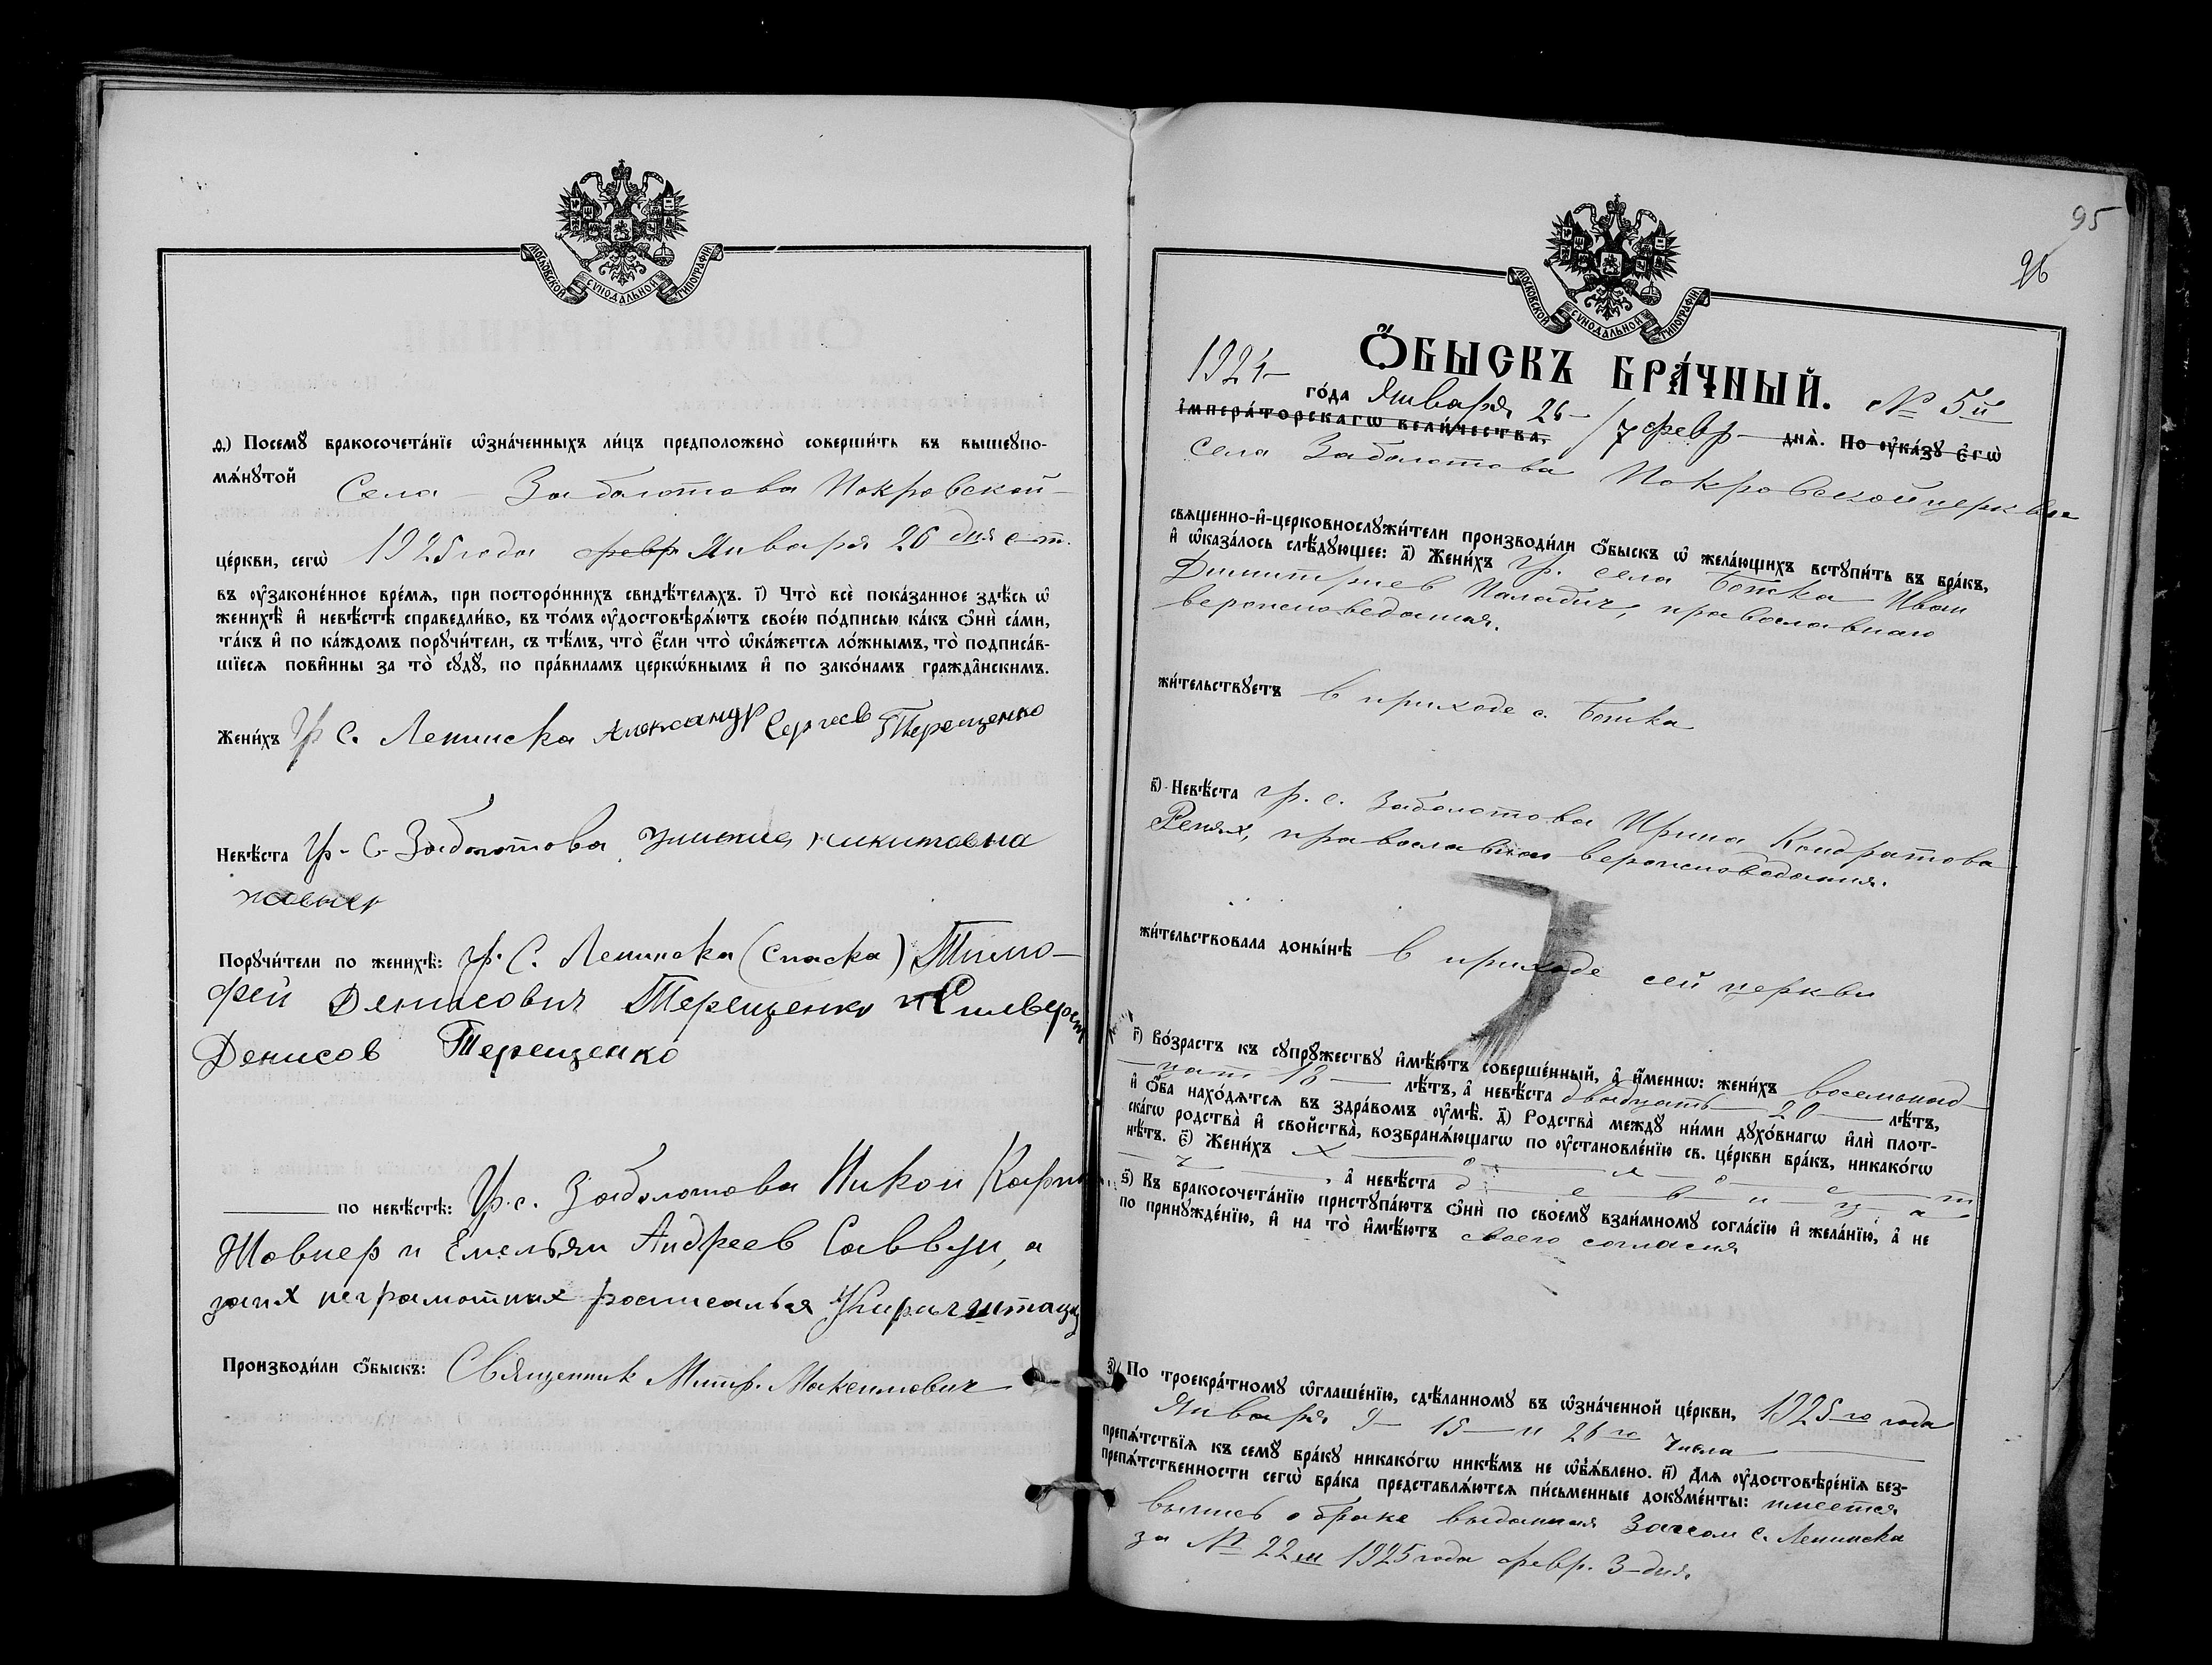 МОСКОВСКОЙ СѴНОДАЛЬНОЙ ТИПОГРАФІИ
д҃.) Посемꙋ̀ бракосочета́нїе ѡ҆зна́ченныхъ ли́цъ предположенò соверши́ть въ вышеꙋпо-
мѧ́нꙋтой Села - Заболотова Покровской -
це́ркви, сегѡ̀ 1925 года февр Января 26 дня с. ст.
въ ᲂу҆законе́нное вре́мѧ, при посторо́ннихъ свидѣ́телѧхъ. і҃) Чтò всѐ пока́занное здѣ́сь ѡ҆
женихѣ̀ и҆ невѣ́стѣ справедли́во, въ то́мъ ᲂу҆достовѣрѧ́ютъ свое́ю по́дписью ка́къ ѻ҆нѝ са́ми,
та́къ и҆ по ка́ждомъ порꙋчи́тели, съ тѣ́мъ, чтò є҆́сли чтò ѡ҆ка́жетсѧ ло́жнымъ, тò подписа́в-
шїесѧ пови́нны за тò сꙋдꙋ̀, по пра́виламъ церкѡ́внымъ и҆ по зако́намъ гражда́нскимъ.
Жени́хъ Гр С. Ленинска Александр Сергеев Терещенко
Невѣ́ста Гр. С. Заболотова никитовна
Порꙋчи́тели по женихѣ̀: Гр. С. Ленинска (Спаска) Тимо-
фей Денисович Терещенко и Сильверст
Денисов Терещенко
по невѣ́стѣ: Гр. с. Заболотова Никон
Шовпер и Емельян Андреев Саввун, а
за них неграмотных росписалься
Производи́ли ѻ҆́быскъ: Священник Митр. Максимович
95
96
МОСКОВСКОЙ СѴНОДАЛЬНОЙ ТИПОГРАФІИ
Ѻ҆́БЫСКЪ БРА́ЧНЫЙ. № 5й
1924 го́да Января 26 / 7 февр днѧ̀. По ᲂу҆ка́зꙋ Є҆гѡ̀
І҆мпера́торскагѡ вели́чества,
села Заболотова Покровской церкви
свѧще́нно-и҆-церковнослꙋжи́тели производи́ли ѻ҆́быскъ ѡ҆ жела́ющихъ встꙋпи́ть въ бра́къ,
и҆ ѡ҆каза́лось слѣ́дꙋющее: а҃) Жени́хъ гр. селаБотка Иван
Димитриев Паладич, православнаго
вероисповедания.
жи́тельствꙋетъ в приходе с. Ботка
в҃) Невѣ́ста гр. с. Заболотова Ирина Кондратова
Репях, православнаго вероисповедания.
жи́тельствовала донынѣ̀ в приходе сей церкви
г҃) Во́зрастъ къ сꙋпрꙋ́жествꙋ и҆мѣ́ютъ соверше́нный, а҆ и҆́меннѡ: жени́хъ восемьнад-
цать 18 лѣ́тъ, а҆ невѣ́ста двадцать 20 лѣ́тъ,
и҆ ѻ҆́ба нахо́дѧтсѧ въ здра́вомъ ᲂу҆мѣ̀. д҃) Родства̀ междꙋ ни́ми дꙋхо́внагѡ и҆лѝ плот-
ска́гѡ родства̀ и҆ свойства̀, возбранѧ́ющагѡ по ᲂу҆становле́нїю св. це́ркви бра́къ, никако́гѡ
нѣ́тъ. є҃) Жени́хъ х о л о с т, а҆ невѣ́ста д е в и ц а
ѕ҃) Къ бракосочета́нїю пристꙋпа́ютъ ѻ҆нѝ по своемꙋ̀ взаи́мномꙋ согла́сїю и҆ жела́нїю, а҆ не
по принꙋжде́нїю, и҆ на тò и҆мѣ́ютъ своего согласия
з҃) По троекра́тномꙋ ѡ҆глаше́нїю, сдѣ́ланномꙋ въ ѡ҆зна́ченной це́ркви, 1925го года
Января 9 - 15 - и 26го числа
препѧ́тствїѧ къ семꙋ̀ бра́кꙋ никако́гѡ никѣ́мъ не ѡ҆б̾ѧ́влено. и҃) Длѧ ᲂу҆достовѣре́нїѧ без-
препѧ́тственности сегѡ̀ бра́ка представлѧ́ютсѧ пи́сьменные докꙋме́нты: имеется
выпись о браке выданная Загсом с. Ленинска
за № 22м 1925 года февр. 3-дня.